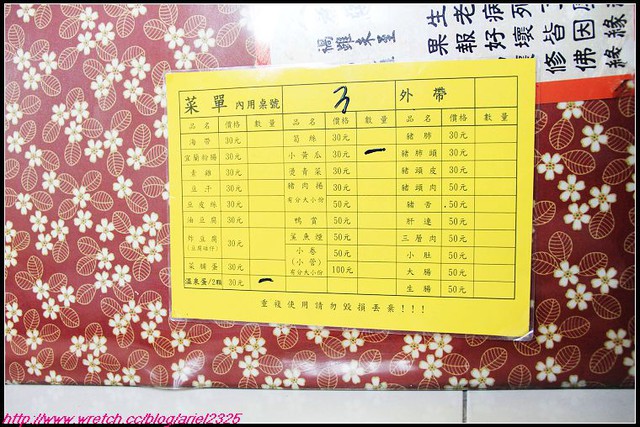 菜單 內用桌號 3 外帶
品名 價格 數量 品名 價格 數量 品名 價格 數量
海帶 30元 筍絲 30元 豬肺 30元
宜蘭粉腸 30元 小黃瓜 30元 一 豬肺頭 30元
素雞 30元 燙青菜 30元 豬頭皮 30元
豆干 30元 豬肉捲 30元 豬頭肉 50元
豆皮絲 30元 有分大小份 50元 豬舌 50元
油豆腐 30元 鴨賞 50元 肝連 50元
炸豆腐 30元 鯊魚煙 50元 三層肉 50元
小卷 50元 小肚 50元
(小管)
菜脯蛋 30元 有分大小份 100元 大腸 50元
溫泉蛋/2顆 30元 一 生腸 50元
重複使用請勿毀損丟棄!!!
http://www.wretch.cc/blog/ariel2325